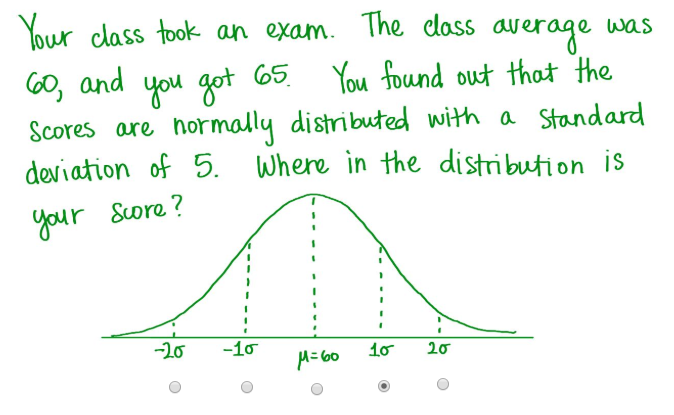 Your class took an exam. The class average was
60, and you got 65. You found out that the
scores are normally distributed with a standard
deviation of 5. Where in the distribution is
your score?
-2σ -1σ μ=60 1σ 2σ